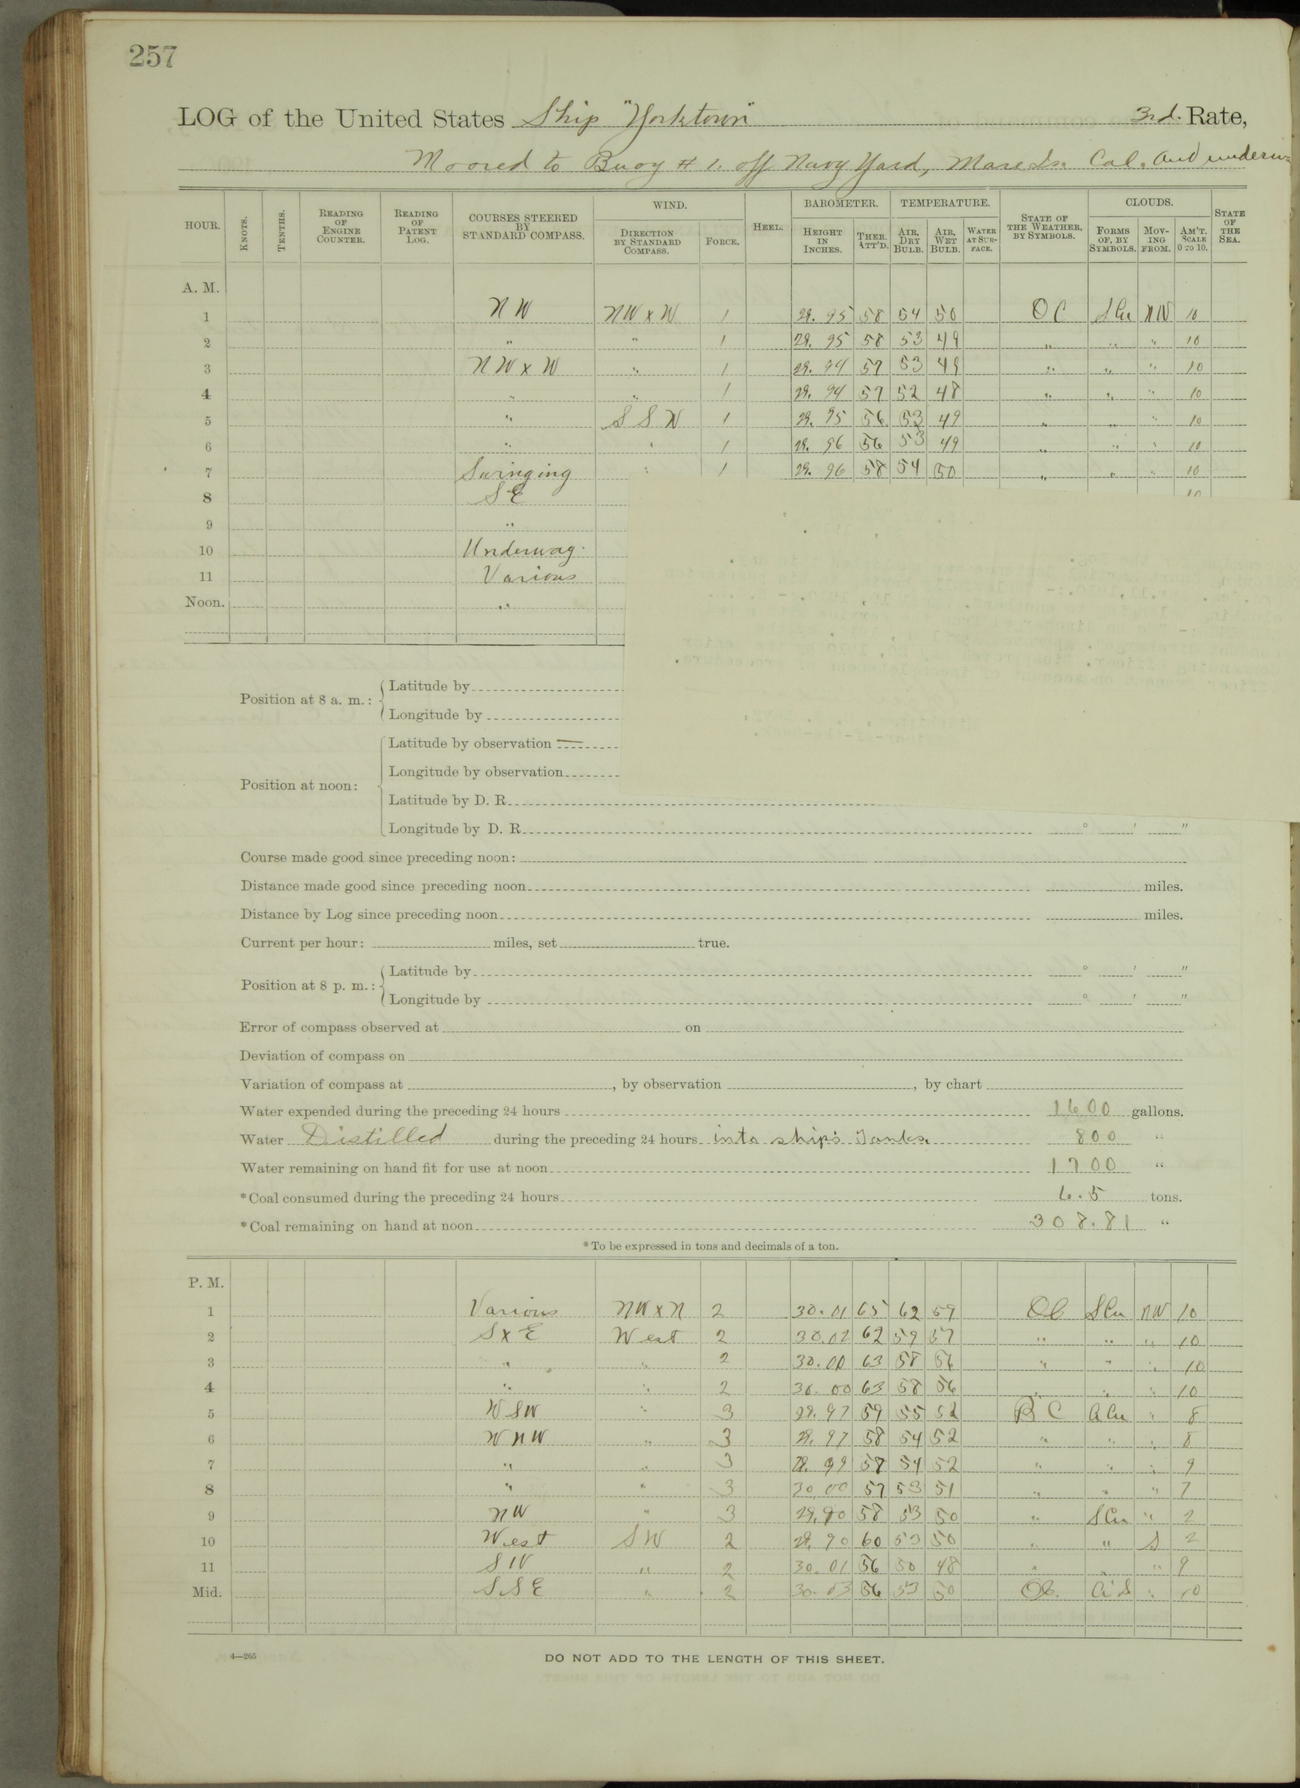 257
LOG of the United States Ship "Yorktown" 3rd. Rate,
Moored to Buoy # 1. off Navy Yard, Mare Is. Cal. and underw
HOUR. KNOTS. TENTHS. READING OF ENGINE COUNTER. READING OF PATENT LOG. COURSES STEERED BY STANDARD COMPASS. WIND. DIRECTION BY STANDARD COMPASS. FORCE. HEEL. BAROMETER. HEIGHT IN INCHES. THER. ATT'D. TEMPERATURE. AIR, DRY BULB. AIR, WET BULB. WATER AT SURFACE. STATE OF THE WEATHER, BY SYMBOLS. CLOUDS. FORMS OF, BY SYMBOLS. MOVING FROM. AM'T. SCALE 0 TO 10. STATE OF THE SEA.
A. M.
1 NW NW x W 1 29. 95 58 54 50 OC SCu NW 10
2 " " 1 29. 95 58 53 49 " " " 10
3 NW x W " 1 29. 94 57 53 49 " " " 10
4 " " 1 29. 94 57 52 48 " " " 10
5 " SSW 1 29. 95 56 53 49 " " " 10
6 " " 1 29. 96 56 53 49 " " " 10
7 Swinging " 1 29. 96 58 54 50 " " " 10
8 SE 10
9 "
10 Underway.
11 Various
Noon. "
Position at 8 a. m.: Latitude by
Longitude by
Position at noon: Latitude by observation
Longitude by observation
Latitude by D. R.
Longitude by D. R. ° ' "
Course made good since preceding noon:
Distance made good since preceding noon miles.
Distance by Log since preceding noon miles.
Current per hour: miles, set true.
Position at 8 p. m.: Latitude by ° ' "
Longitude by ° ' "
Error of compass observed at on
Deviation of compass on
Variation of compass at , by observation , by chart
Water expended during the preceding 24 hours 1600 gallons.
Water Distilled during the preceding 24 hours into ship's Tanks. 800 "
Water remaining on hand fit for use at noon 1700 "
*Coal consumed during the preceding 24 hours 6.5 tons.
*Coal remaining on hand at noon 308.81 "
*To be expressed in tons and decimals of a ton.
P. M.
1 Various NW x N 2 30.01 65 62 59 OC SCu NW 10
2 S x E West 2 30.02 62 59 57 " " " 10
3 " " 2 30.00 63 58 56 " " " 10
4 " " 2 30.00 63 58 56 " " " 10
5 WSW " 3 29.97 59 55 52 BC ACu " 8
6 WNW " 3 29.97 58 54 52 " " " 8
7 " " 3 29.99 58 54 52 " " " 9
8 " " 3 30.00 57 53 51 " " " 7
9 NW " 3 29.90 58 53 50 " SCu " 2
10 West SW 2 29.90 60 53 50 " " S 2
11 SW " 2 30.01 56 50 48 " " " 9
Mid. SSE " 2 30.03 56 53 50 OC. " 10
4—265
DO NOT ADD TO THE LENGTH OF THIS SHEET.